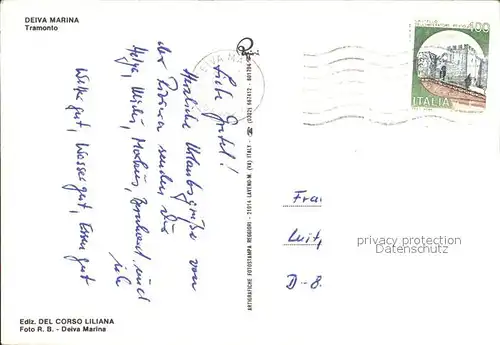 DEIVA MARINA
Tramonto
Liebe Gretel!
Herzliche Urlaubsgrüße von
der Riviera senden Dir
Helga, Markus, Bernhard und
Wetter gut, Wasser gut, Essen gut
Ediz. DEL CORSO LILIANA
Foto R. B. - Deiva Marina
ARTIGRAFICHE FOTOSTAMPA REGGIORI - 21014 LAVENO-M. (VA) ITALY
DEIVA MA
400
ITALIA
Frau
Luit
D-8
privacy protection
Datenschutz